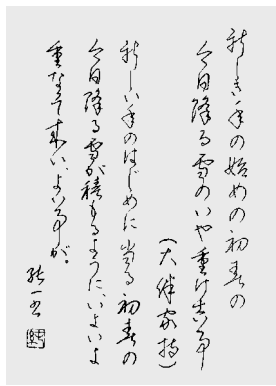 新しき年の始めの初春の
今日降る雪のいや重け吉事
(大伴家持)
新しい年のはじめに当る初春の
今日降る雪が積もるように、いよいよ
重なって来い、よい事が。